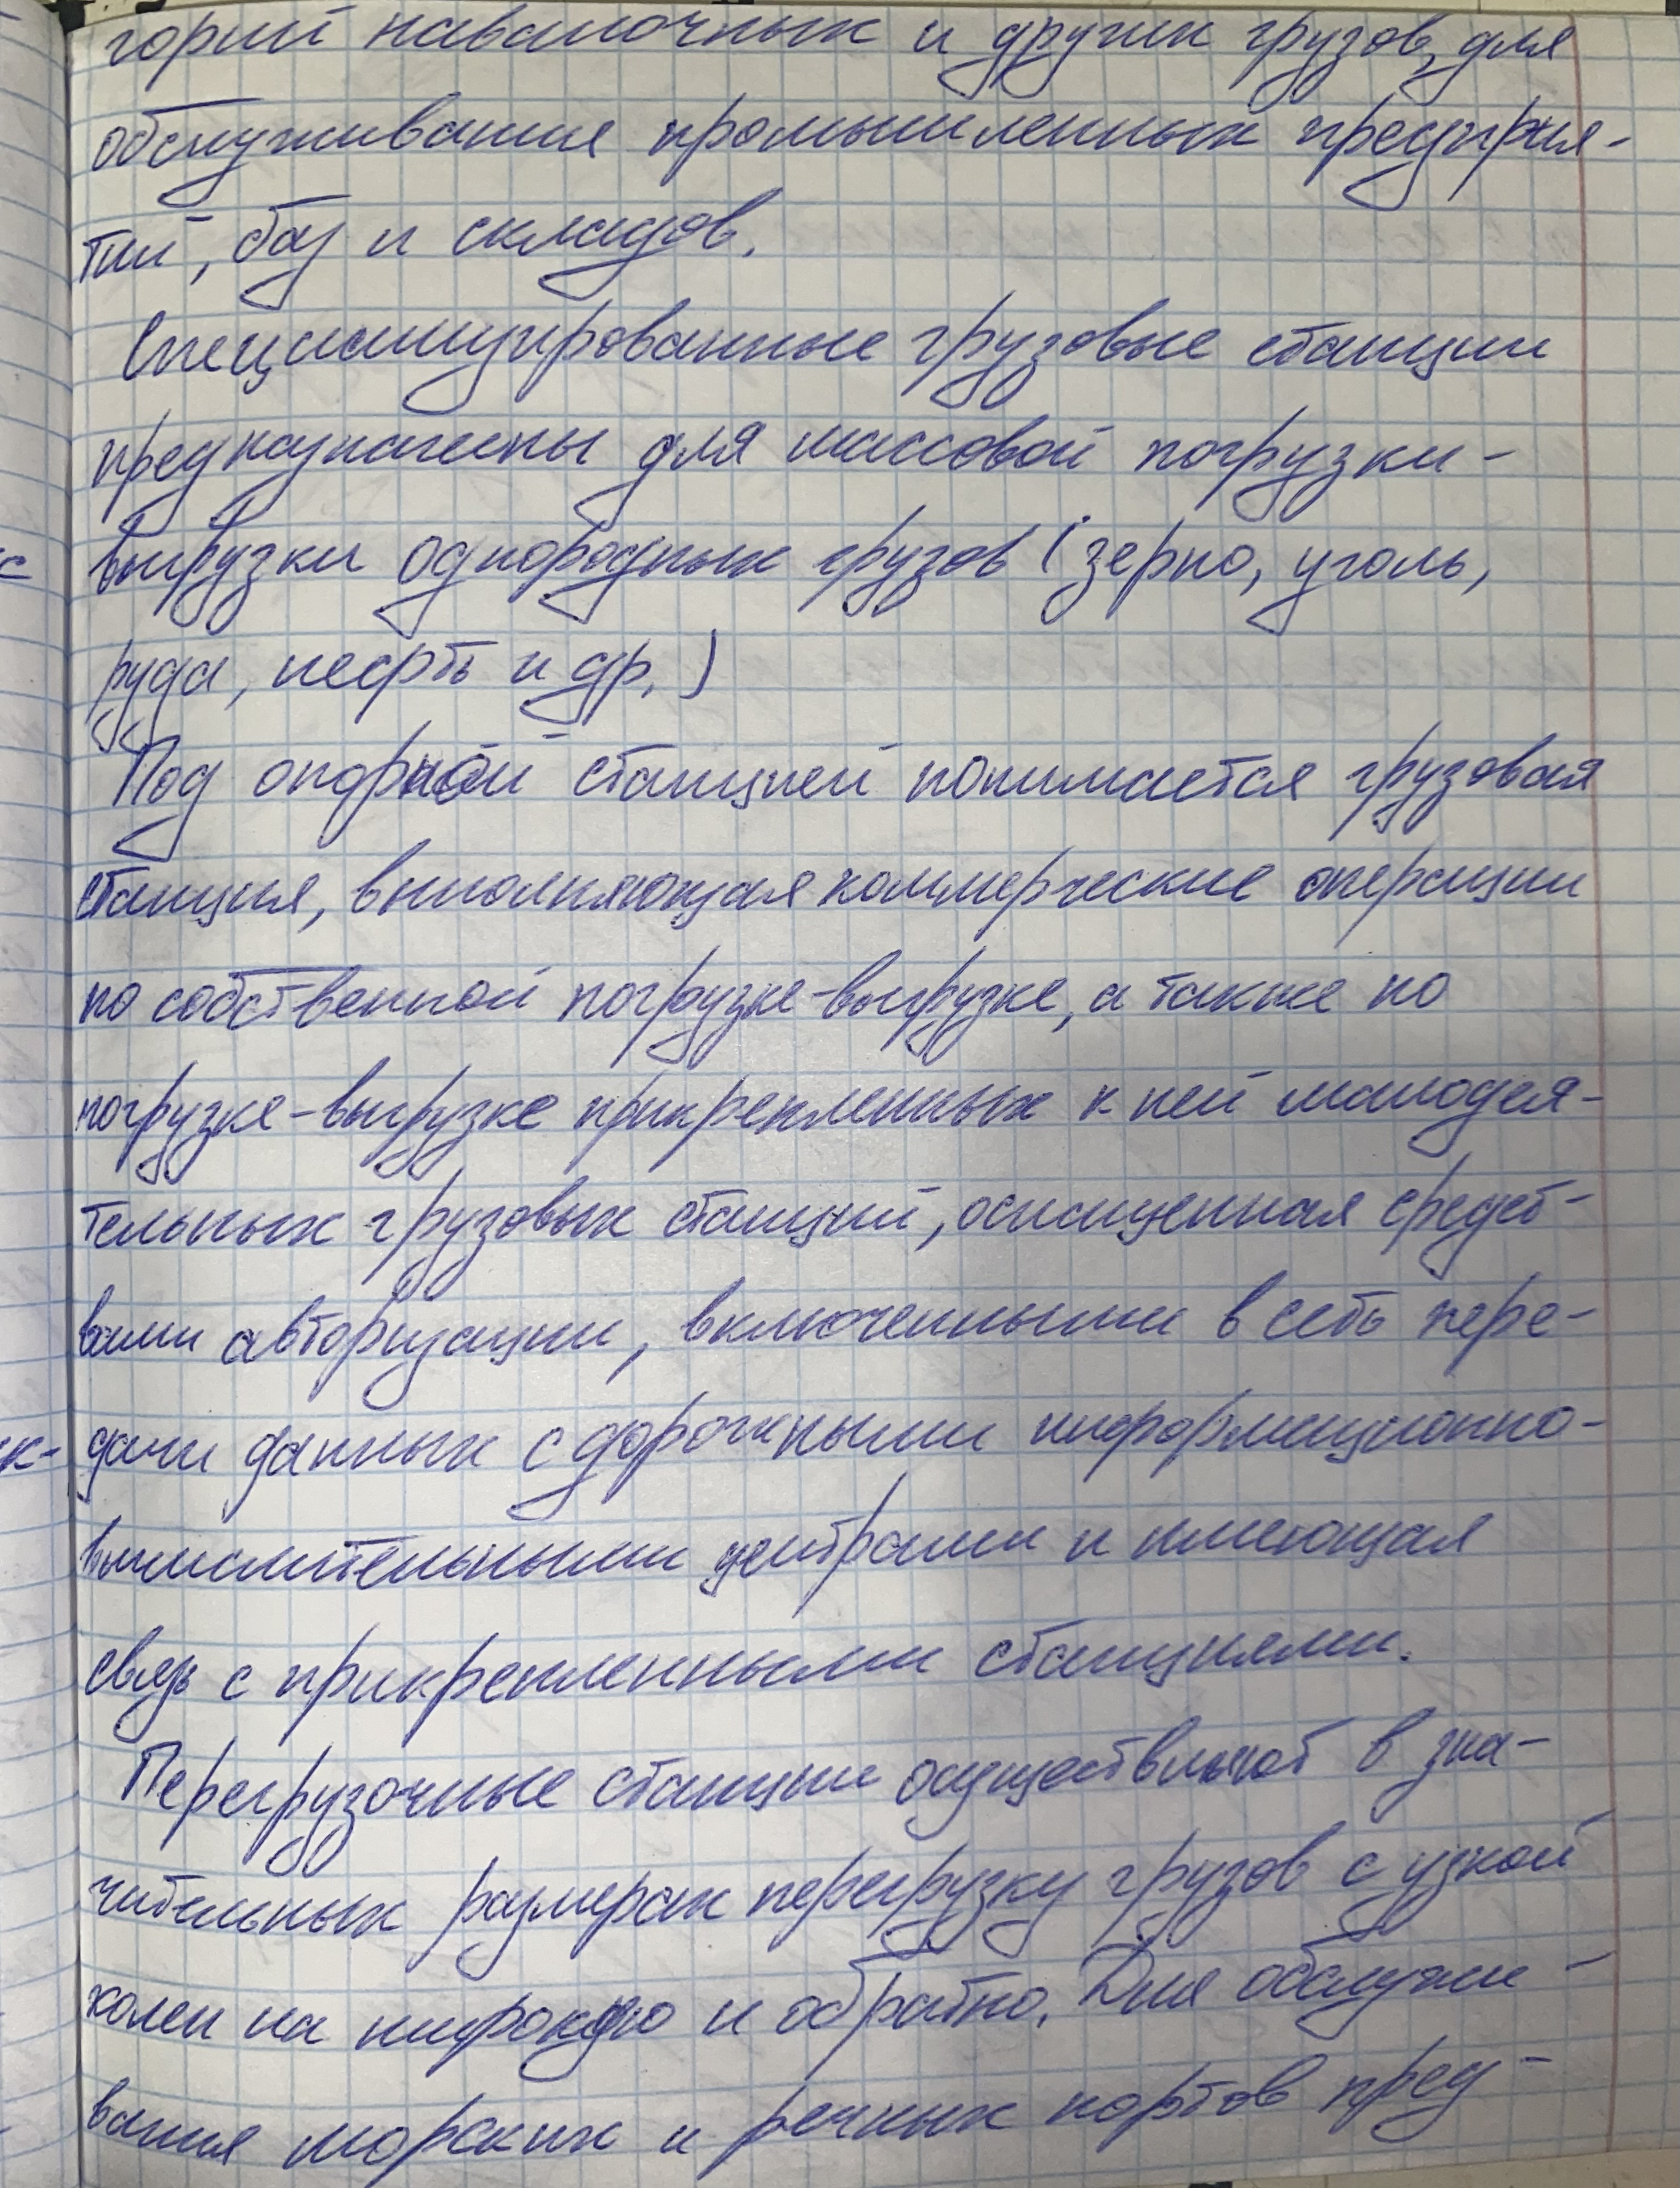 горий навалочных и других грузов, для
обслуживания промышленных предприя-
тий, баз и складов.
Специализированные грузовые станции
предназначены для массовой погрузки-
выгрузки однородных грузов (зерно, уголь,
руда, нефть и др.)
Под опорной станцией понимается грузовая
станция, выполняющая коммерческие операции
по собственной погрузке-выгрузке, а также по
погрузке-выгрузке прикрепленных к ней малодея-
тельных грузовых станций, оснащенная средст-
вами авторизации, включенными в сеть пере-
дачи данных с дорожными информационно-
вычислительными центрами и имеющая
связь с прикрепленными станциями.
Перегрузочные станции осуществляют в зна-
чительных размерах перегрузку грузов с узкой
колеи на широкую и обратно. Для обслужи-
вания морских и речных портов пред-